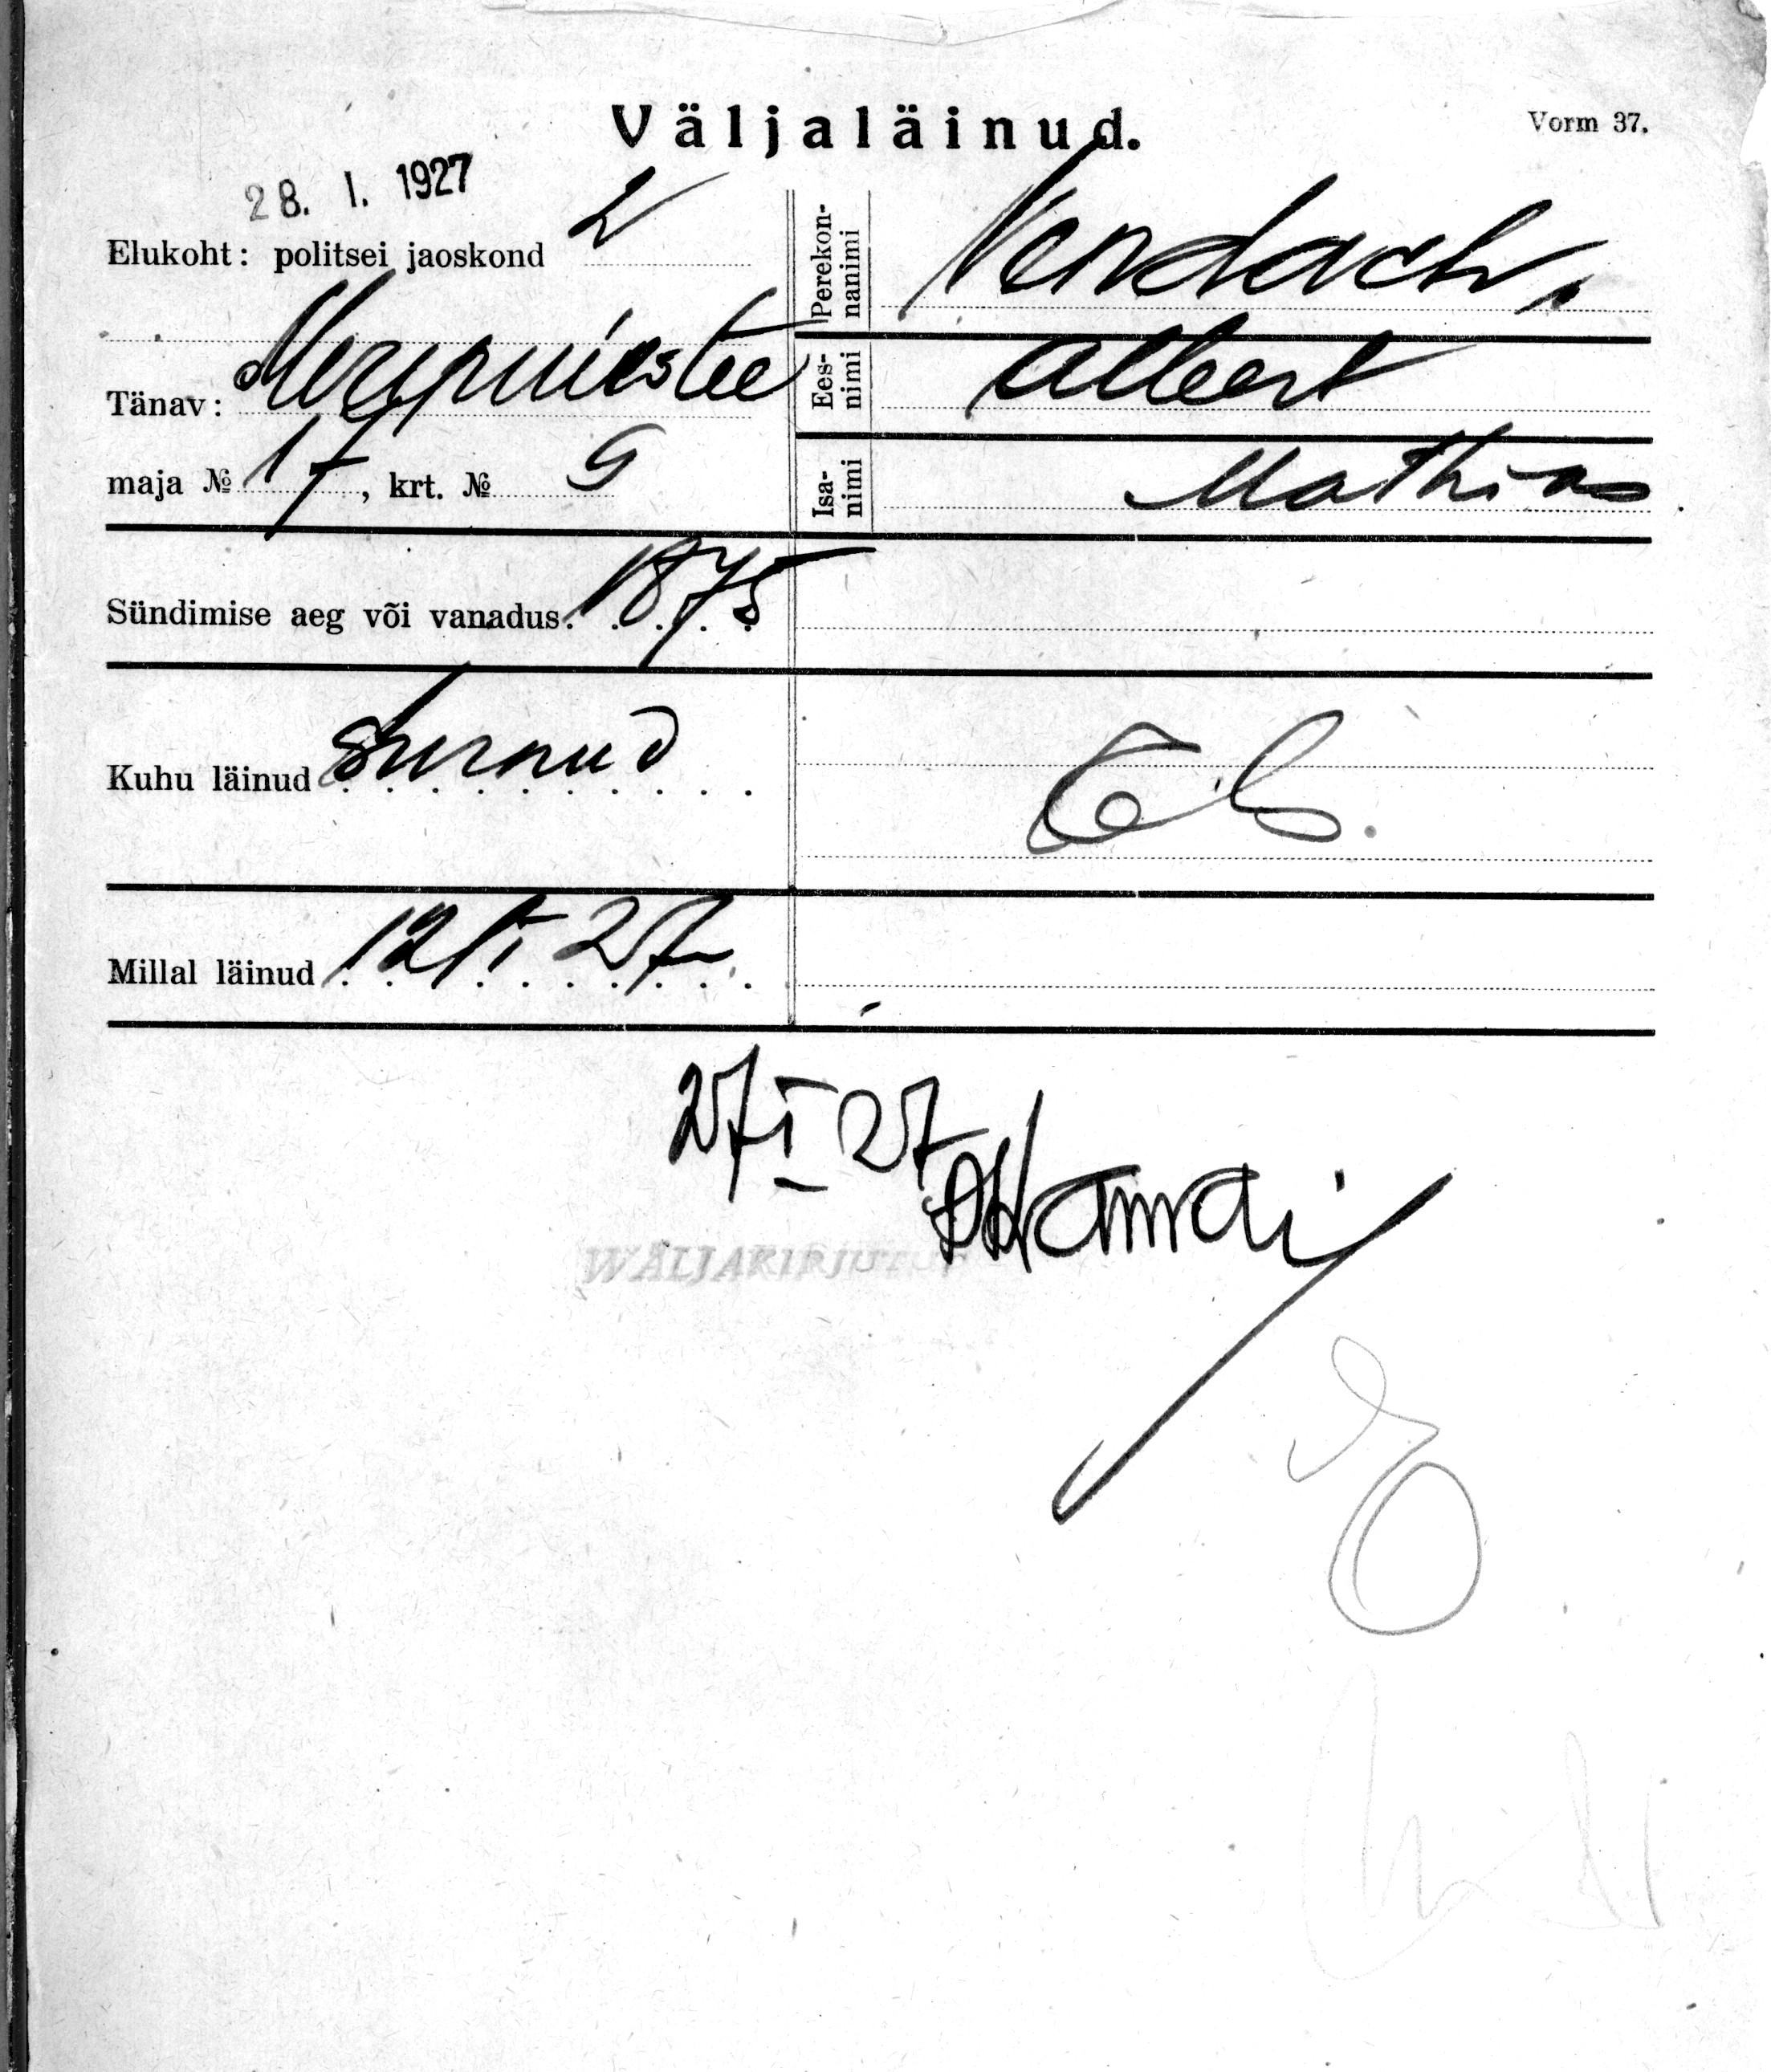 Väljaläinud.
Vorm 37.
28. I. 1927
Elukoht: politsei jaoskond 2
Tänav:
maja № 17, krt. № 9
Perekon-
nanimi
Ees-
nimi Albert
Isa-
nimi Mathias
Sündimise aeg või vanadus. 1875
Kuhu läinud surnud
Millal läinud 12/I 27
27 I 27
WÄLJAKIRJUTUD